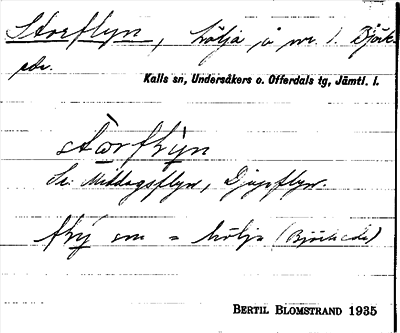 Storflyn, hölja i nr 1 Björk-
ede.
Kalls sn, Undersåkers o. Offerdals tg, Jämtl. l.
stōrflyn
Se. Middagsflyn, Djupflyn.
flý sm = hölja (Björkede)
BERTIL BLOMSTRAND 1935